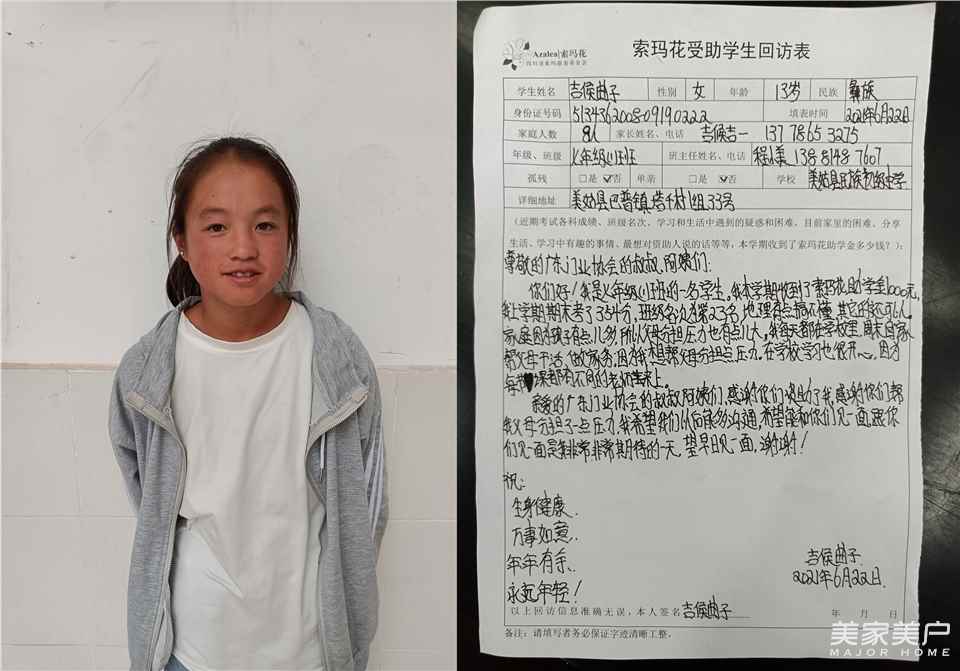 Azalea 索玛花
索玛花受助学生回访表
学生姓名 吉侯曲子 性别 女 年龄 13岁 民族 彝族
身份证号码 513436200809190222 填表时间 2021年6月22日
家庭人数 8人 家长姓名、电话 吉侯吉一 137 7865 3275
年级、班级 班主任姓名、电话 138 8148 7607
孤残 □是 ☑否 单亲 □是 ☑否 学校 美姑县民族初级中学
详细地址 美姑县巴普镇塔千村1组33号
(近期考试各科成绩、班级名次、学习和生活中遇到的疑惑和困难、目前家里的困难、分享
生活、学习中有趣的事情、最想对资助人说的话等等,本学期收到了索玛花助学金多少钱?):
尊敬的广东门业协会的叔叔,阿姨们:
你们好!我是七年级(2)班的一名学生。我本学期收到了索玛花助学金1000元,
我上学期期末考了354分,班级名次为第23名,地理有点搞不懂,其它的还可以,
家庭因孩子有点儿多,所以父母分担压力也有点儿大,我每天都在学校里,周末回家
帮父母干活,做家务,因为我想帮父母分担点压力,在学校学习也很开心。因为
每节课都有不同的老师来上。
亲爱的广东门业协会的叔叔,阿姨们,感谢你们资助了我,感谢你们帮
我父母分担了一点压力,我希望我们以后能多多沟通,希望能和你们见一面,跟你
们见一面是我非常非常期待的一天,望早日见一面,谢谢!
祝:
生身健康.
万事如意.
年年有余.
永远年轻!
吉侯曲子
2021年6月22日.
以上回访信息准确无误,本人签名 吉侯曲子 年 月 日
备注:请填写者务必保证字迹清晰工整。
美家美户
MAJOR HOME